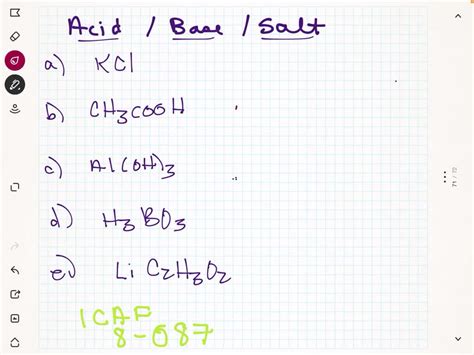 Acid / Base / Salt
a) KCl
b) CH3COOH
c) Al(OH)3
d) H3BO3
e) LiC2H3O2
ICAP
8-087